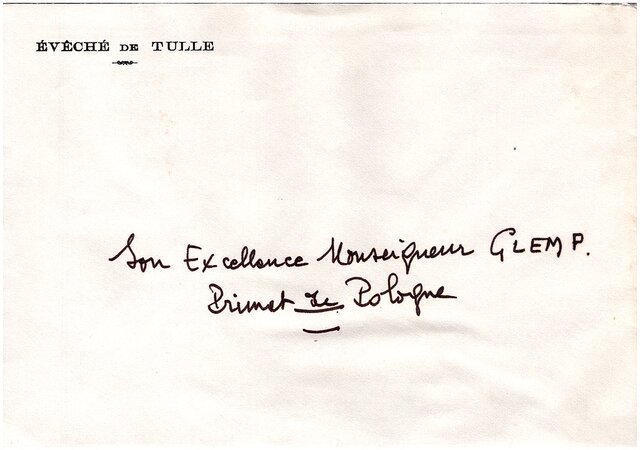 ÉVÊCHÉ DE TULLE
Son Excellence Monseigneur GLEMP.
Primat de Pologne